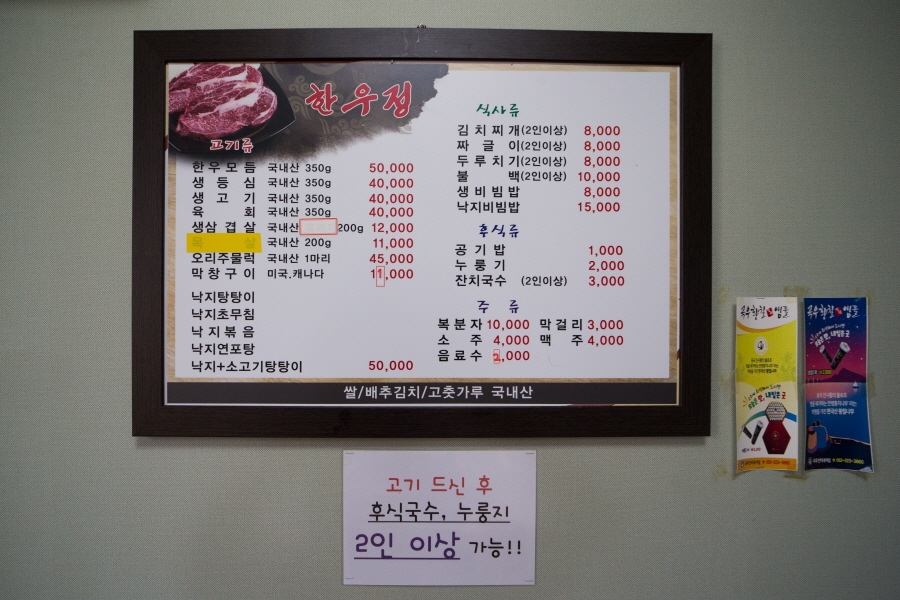 한우집
고기류
한우모듬 국내산 350g 50,000
생등심 국내산 350g 40,000
생고기 국내산 350g 40,000
육회 국내산 350g 40,000
생삼겹살 국내산 200g 12,000
목살 국내산 200g 11,000
오리주물럭 국내산 1마리 45,000
막창구이 미국.캐나다 11,000
낙지탕탕이
낙지초무침
낙지볶음
낙지연포탕
낙지+소고기탕탕이 50,000
식사류
김치찌개(2인이상) 8,000
짜글이(2인이상) 8,000
두루치기(2인이상) 8,000
불백(2인이상) 10,000
생비빔밥 8,000
낙지비빔밥 15,000
후식류
공기밥 1,000
누룽기 2,000
잔치국수 (2인이상) 3,000
주류
복분자 10,000 막걸리 3,000
소주 4,000 맥주 4,000
음료수 2,000
쌀/배추김치/고춧가루 국내산
고기 드신 후
후식국수, 누룽지
2인 이상 가능!!